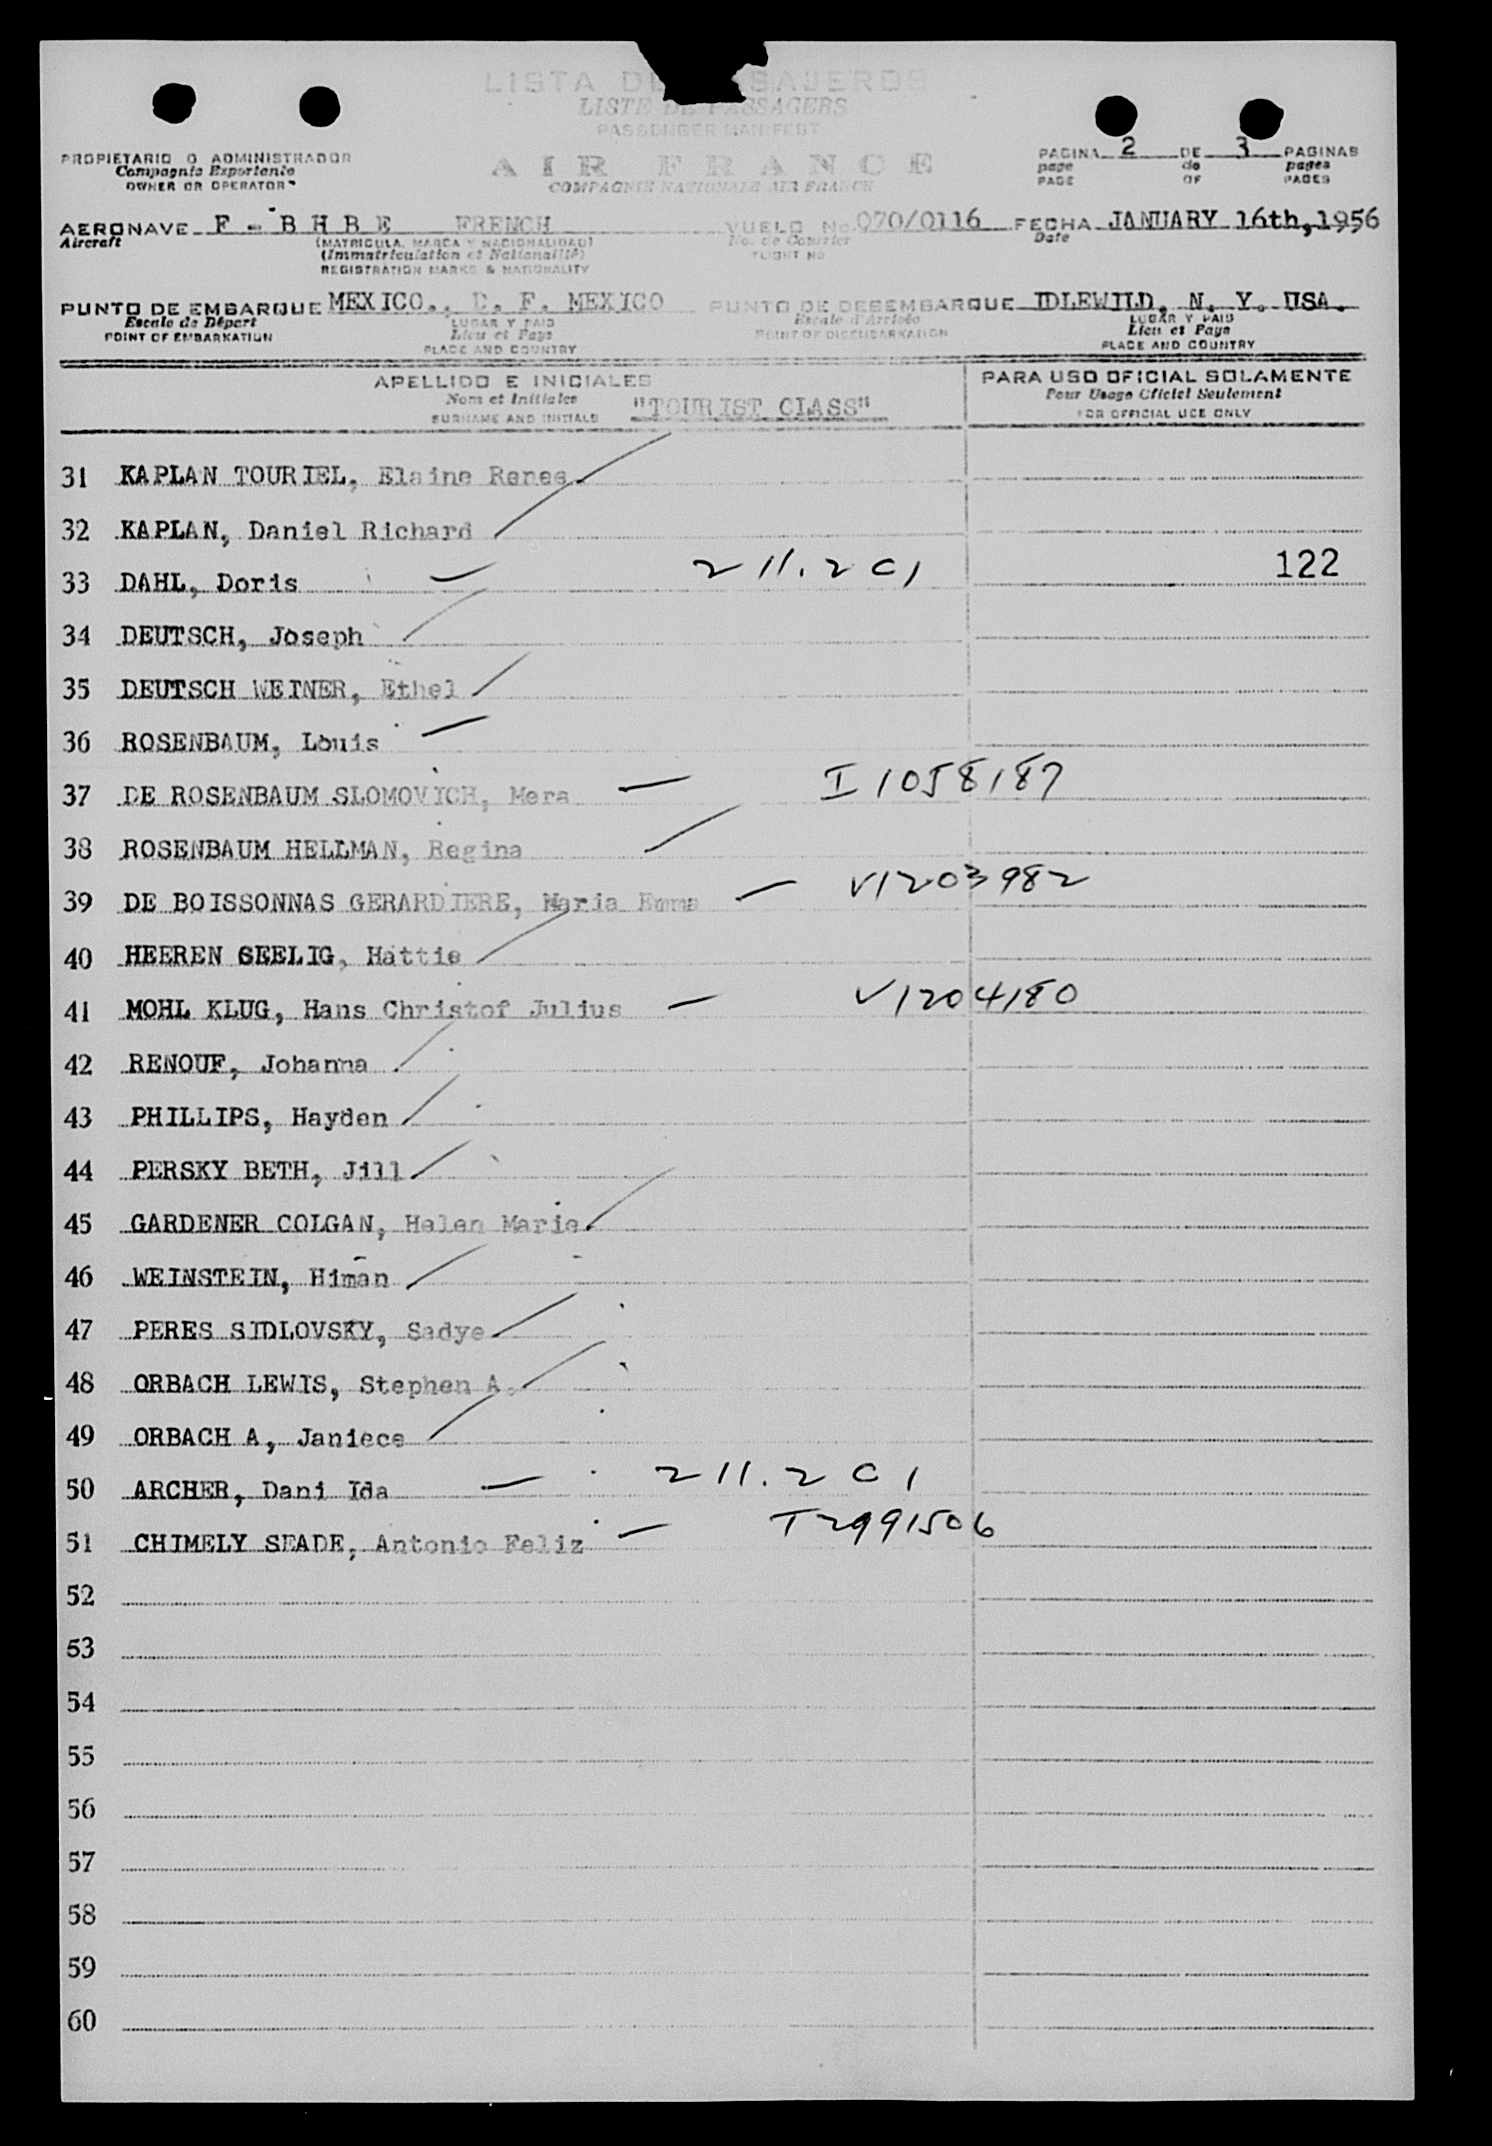 LISTA DE PASAJEROS
LISTE DE PASSAGERS
PASSENGER MANIFEST
PROPIETARIO O ADMINISTRADOR
Compagnie Exportante
OWNER OR OPERATOR
AIR FRANCE
COMPAGNIE NATIONALE AIR FRANCE
PAGINA 2 DE 3 PAGINAS
page de pages
PAGE OF PAGES
AERONAVE F - B H B E FRENCH VUELO No. 070/0116 FECHA JANUARY 16th, 1956
Aircraft (MATRICULA, MARCA Y NACIONALIDAD) No. de Courrier Date
(Immatriculation et Nationalité) FLIGHT No
REGISTRATION MARKS & NATIONALITY
PUNTO DE EMBARQUE MEXICO., D. F. MEXICO PUNTO DE DESEMBARQUE IDLEWILD, N. Y. USA.
Escale de Départ LUGAR Y PAIS Escale d'Arrivée LUGAR Y PAIS
POINT OF EMBARKATION Lieu et Pays POINT OF DISEMBARKATION Lieu et Pays
PLACE AND COUNTRY PLACE AND COUNTRY
APELLIDO E INICIALES PARA USO OFICIAL SOLAMENTE
Nom et Initiales Pour Usage Officiel Seulement
SURNAME AND INITIALS "TOURIST CLASS" FOR OFFICIAL USE ONLY
31 KAPLAN TOURIEL, Elaine Renee
32 KAPLAN, Daniel Richard
33 DAHL, Doris 211.201 122
34 DEUTSCH, Joseph
35 DEUTSCH WEINER, Ethel
36 ROSENBAUM, Louis
37 DE ROSENBAUM SLOMOVICH, Mera I1058187
38 ROSENBAUM HELLMAN, Regina
39 DE BOISSONNAS GERARDIERE, Maria Emma V1203982
40 HEEREN SEELIG, Hattie
41 MOHL KLUG, Hans Christof Julius V1204180
42 RENOUF, Johanna
43 PHILLIPS, Hayden
44 PERSKY BETH, Jill
45 GARDENER COLGAN, Helen Marie
46 WEINSTEIN, Himan
47 PERES SIDLOVSKY, Sadye
48 ORBACH LEWIS, Stephen A.
49 ORBACH A, Janiece
50 ARCHER, Dani Ida 211.201
51 CHIMELY SEADE, Antonio Feliz T2991506
52
53
54
55
56
57
58
59
60